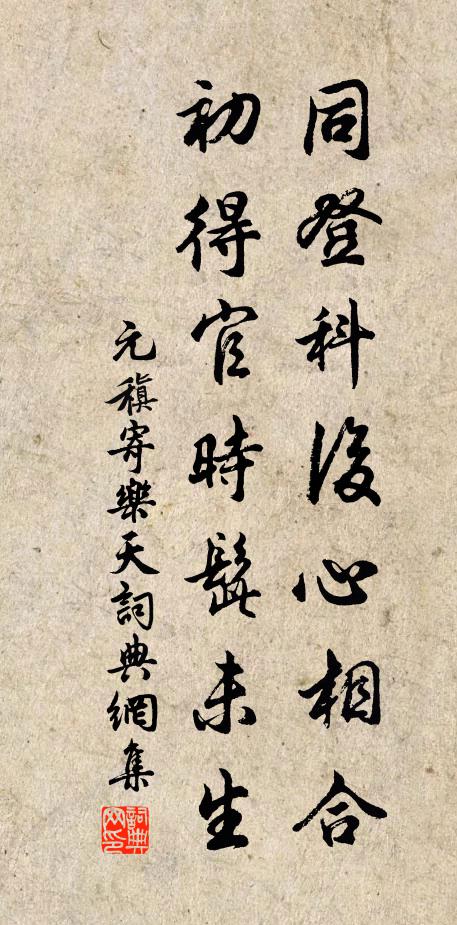 同登科後心相合
初得官時髭未生
元稹寄樂天詞典網集
詞典網印